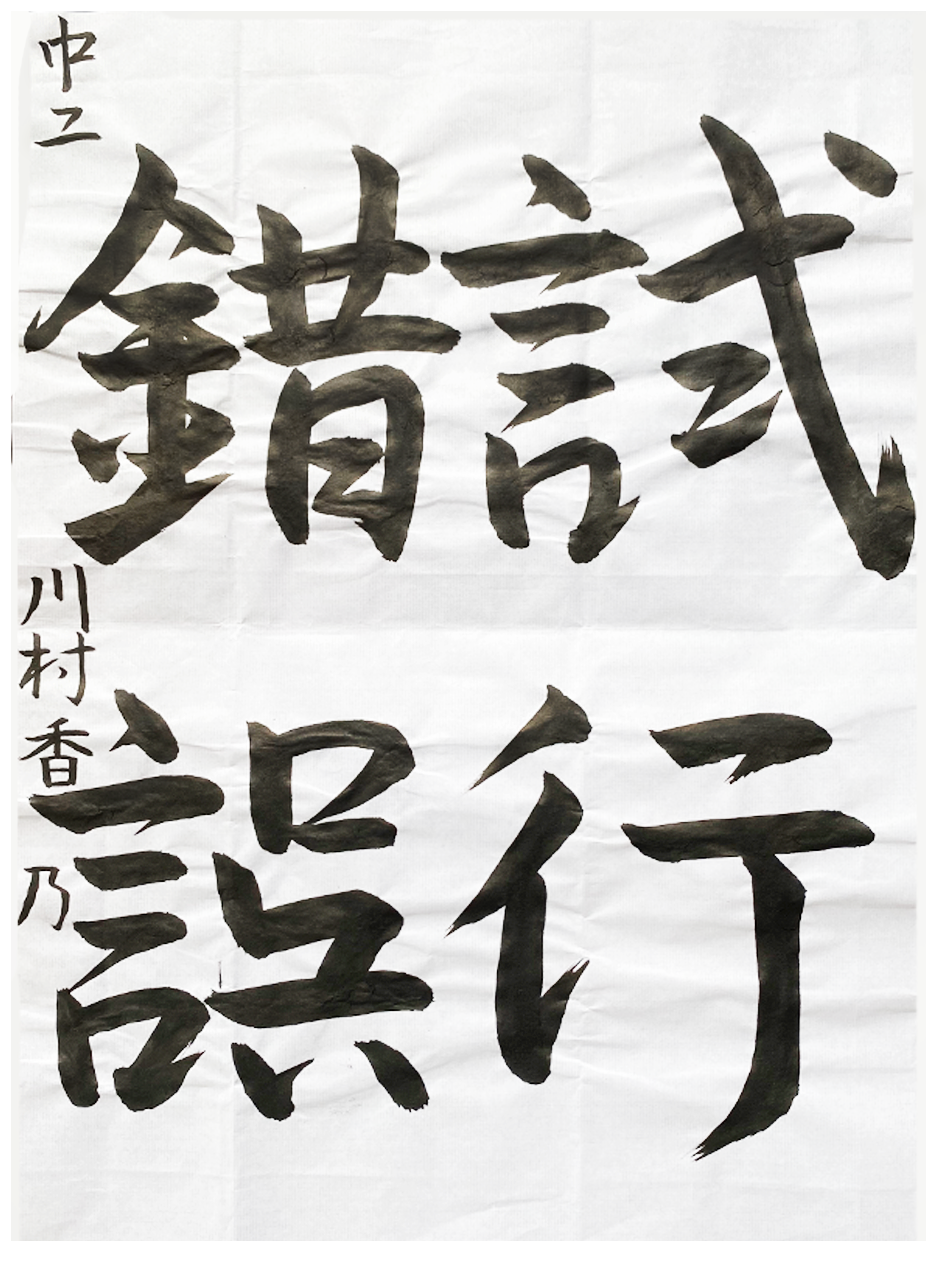 試行
錯誤
中二 川村香乃